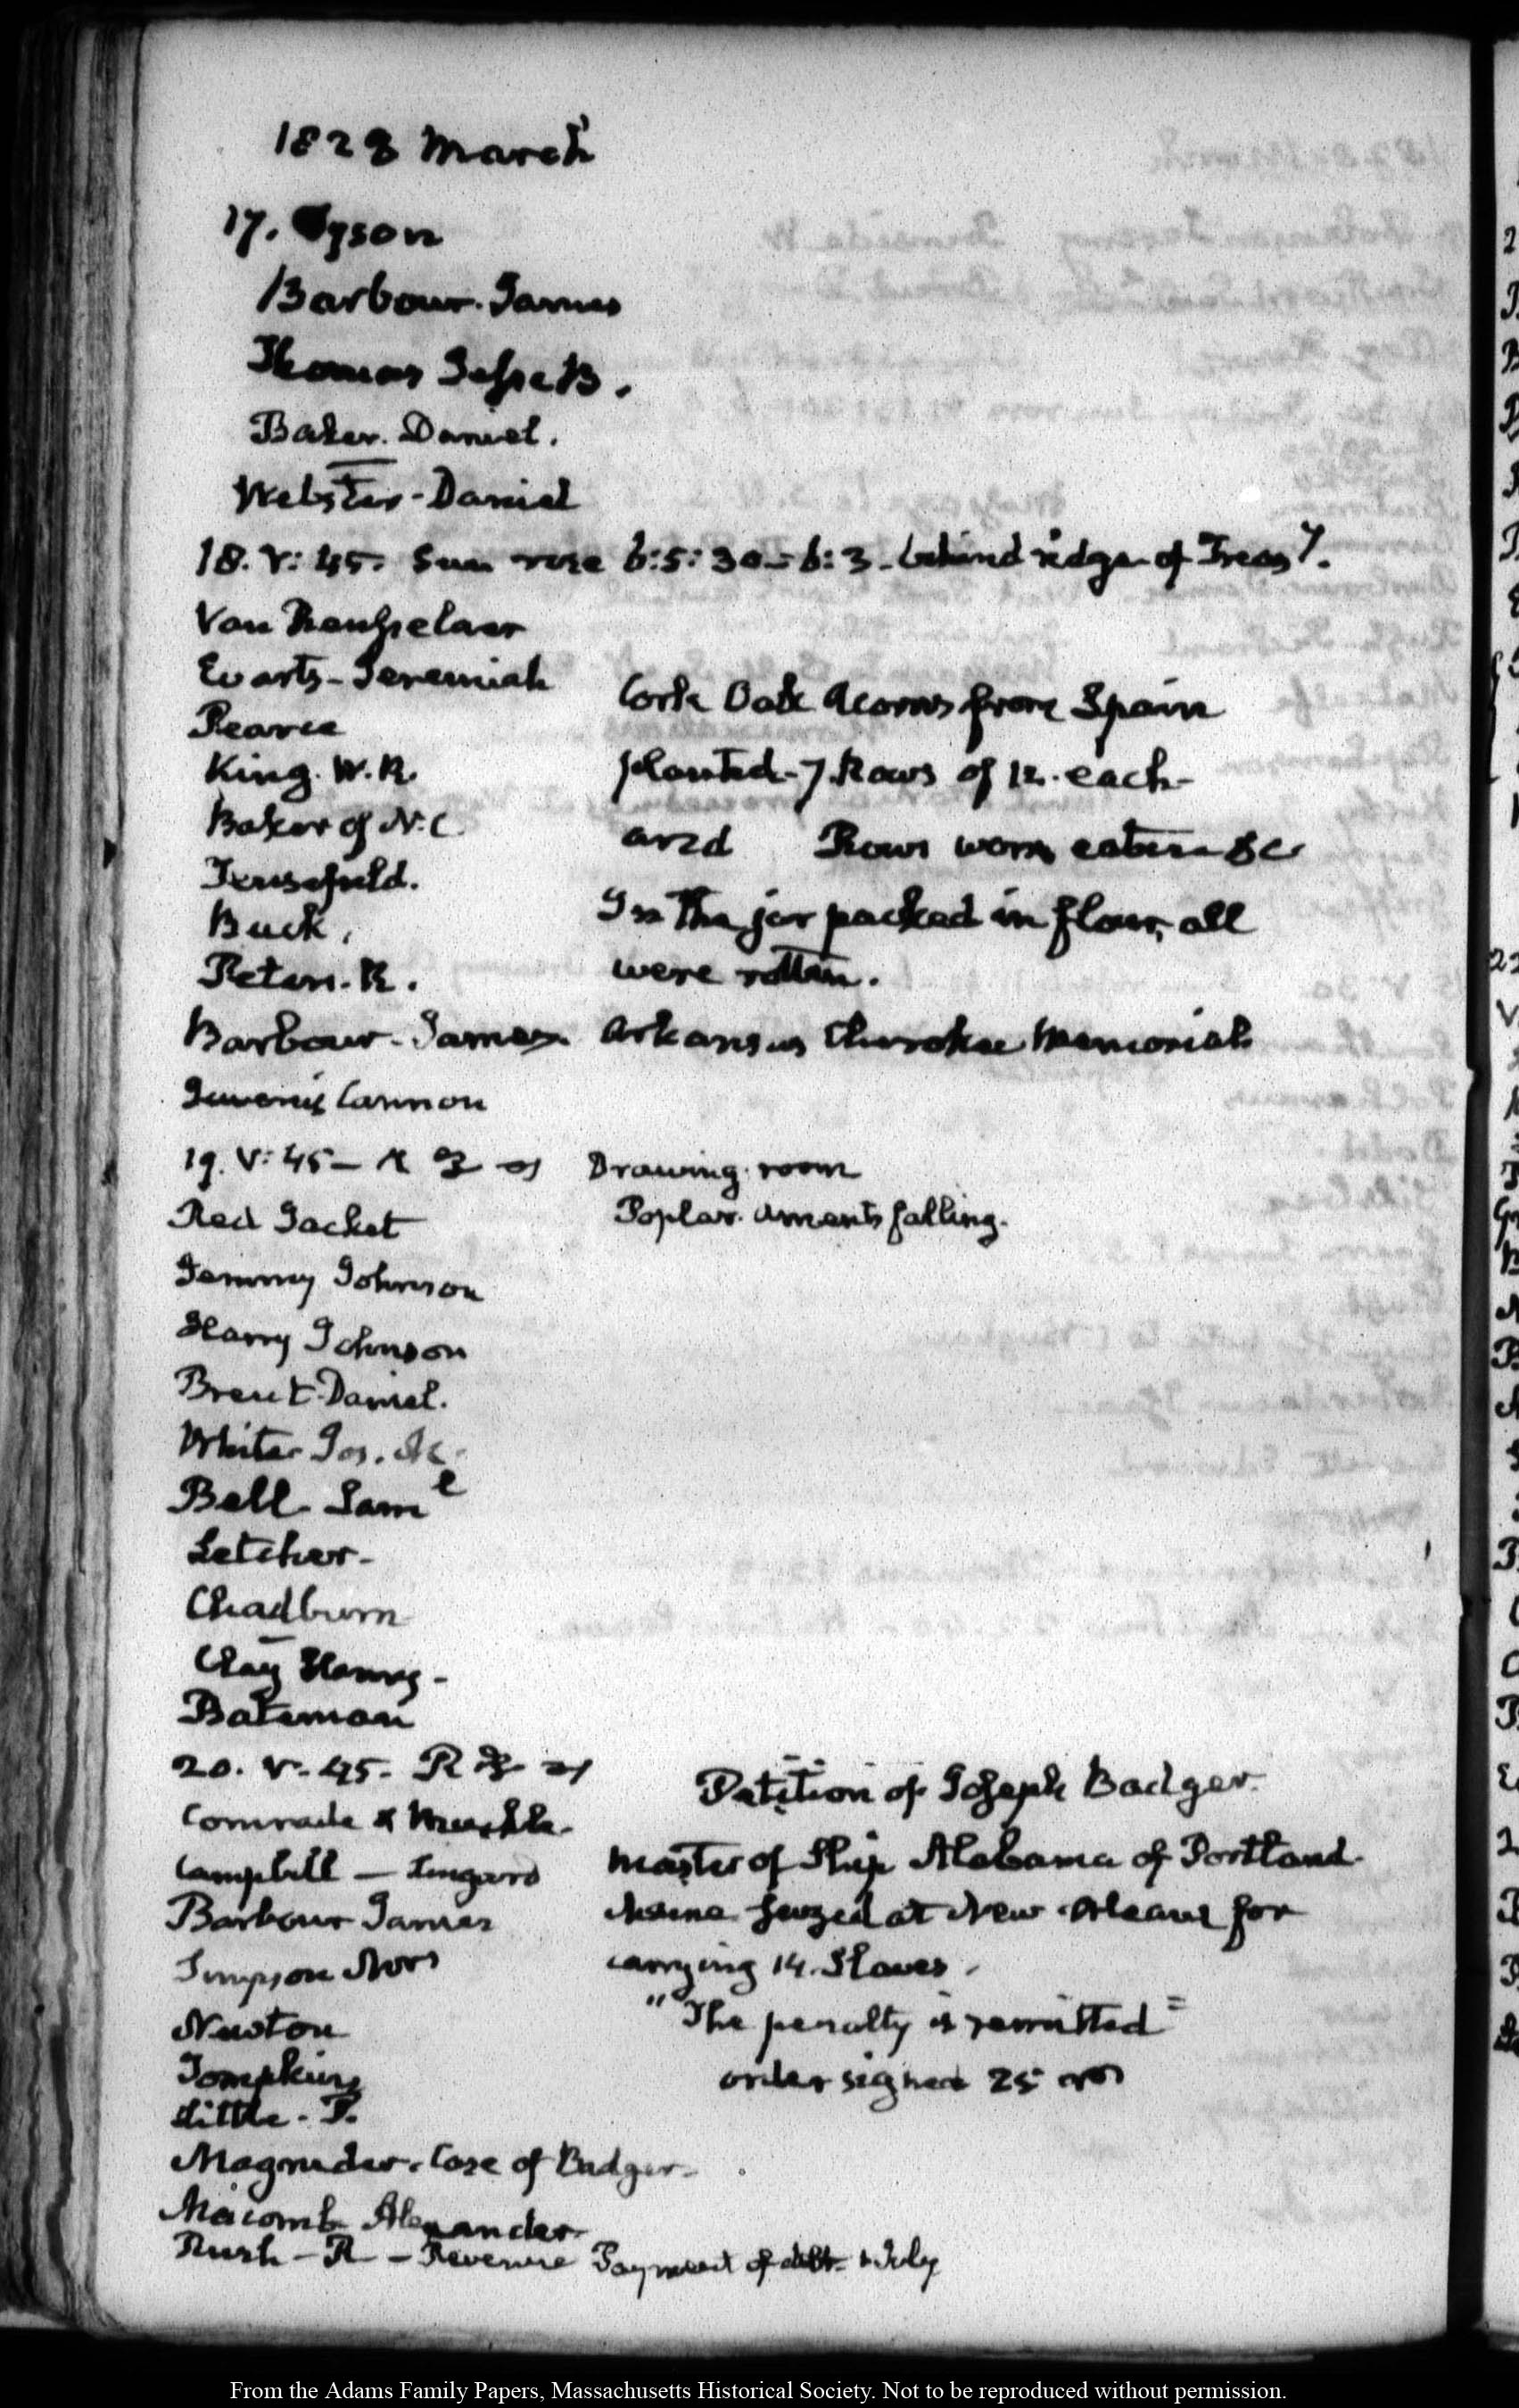 1828 March
17. Tyson
Barbour. James
Thomas Jesse B.
Baker. Daniel.
Webster - Daniel
18. V: 45. Sun rose 6:5:30 - 6:3 - behind ridge of Treasy.
Van Rensselaer
Evarts - Jeremiah
Pearce
King. W. R.
Baker of N. C
Buck.
Peters. R.
Cork Oak Acorns from Spain
planted - 7 Rows of 12. each -
and Rows worm eaten &c
In the jar packed in flour, all
were rotten.
Barbour - James Arkansas Cherokee Memorial
Cannon
19. V: 45 - Drawing room
Red Jacket Poplar. aments falling.
Jemmy Johnson
Harry Johnson
Brent Daniel.
White Jos. M.
Bell - Saml
Letcher -
Chadburn
Clay Henry -
Bateman
20. V. 45. R
Comrade &
Campbell -
Barbour James
Simpson Mrs
Newton
Tompkins
Little - P.
Petition of Joseph Badger
Master of Ship Alabama of Portland
Maine seized at New Orleans for
carrying 14. Slaves.
"The penalty is remitted"
order signed 25
Magruder. Case of Badger -
Macomb Alexander
Rush - R - Revenue Payment of debt - 1 July
From the Adams Family Papers, Massachusetts Historical Society. Not to be reproduced without permission.